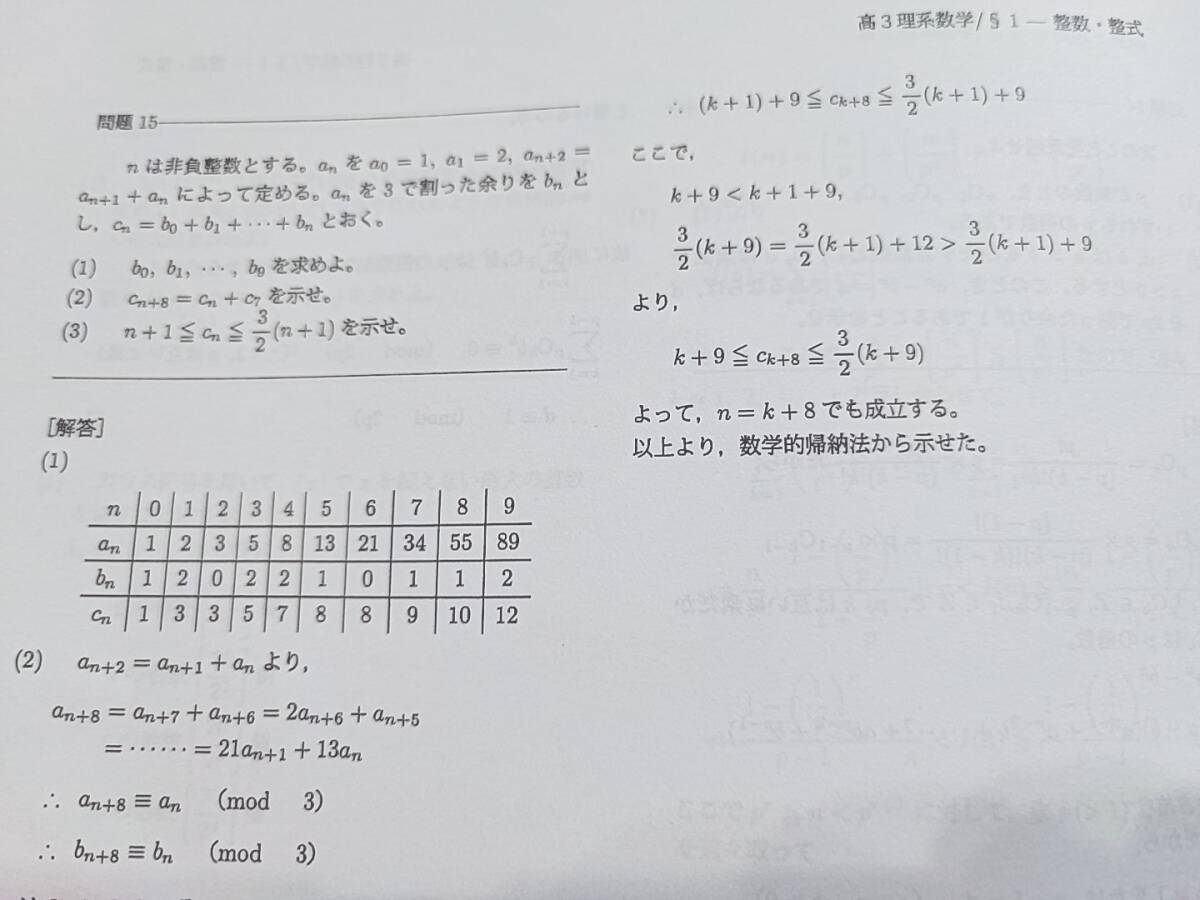 高3理系数学/§1 ― 整数・整式
問題 15
n は非負整数とする。a_n を a_0 = 1, a_1 = 2, a_{n+2} =
a_{n+1} + a_n によって定める。a_n を 3 で割った余りを b_n と
し, c_n = b_0 + b_1 + ⋯ + b_n とおく。
(1) b_0, b_1, ⋯, b_9 を求めよ。
(2) c_{n+8} = c_n + c_7 を示せ。
(3) n + 1 ≦ c_n ≦ 3/2 (n + 1) を示せ。
[解答]
(1)
n 0 1 2 3 4 5 6 7 8 9
a_n 1 2 3 5 8 13 21 34 55 89
b_n 1 2 0 2 2 1 0 1 1 2
c_n 1 3 3 5 7 8 8 9 10 12
(2) a_{n+2} = a_{n+1} + a_n より,
a_{n+8} = a_{n+7} + a_{n+6} = 2a_{n+6} + a_{n+5}
= ⋯⋯ = 21a_{n+1} + 13a_n
∴ a_{n+8} ≡ a_n (mod 3)
∴ b_{n+8} ≡ b_n (mod 3)
∴ (k + 1) + 9 ≦ c_{k+8} ≦ 3/2 (k + 1) + 9
ここで,
k + 9 < k + 1 + 9,
3/2 (k + 9) = 3/2 (k + 1) + 12 > 3/2 (k + 1) + 9
より,
k + 9 ≦ c_{k+8} ≦ 3/2 (k + 9)
よって, n = k + 8 でも成立する。
以上より, 数学的帰納法から示せた。